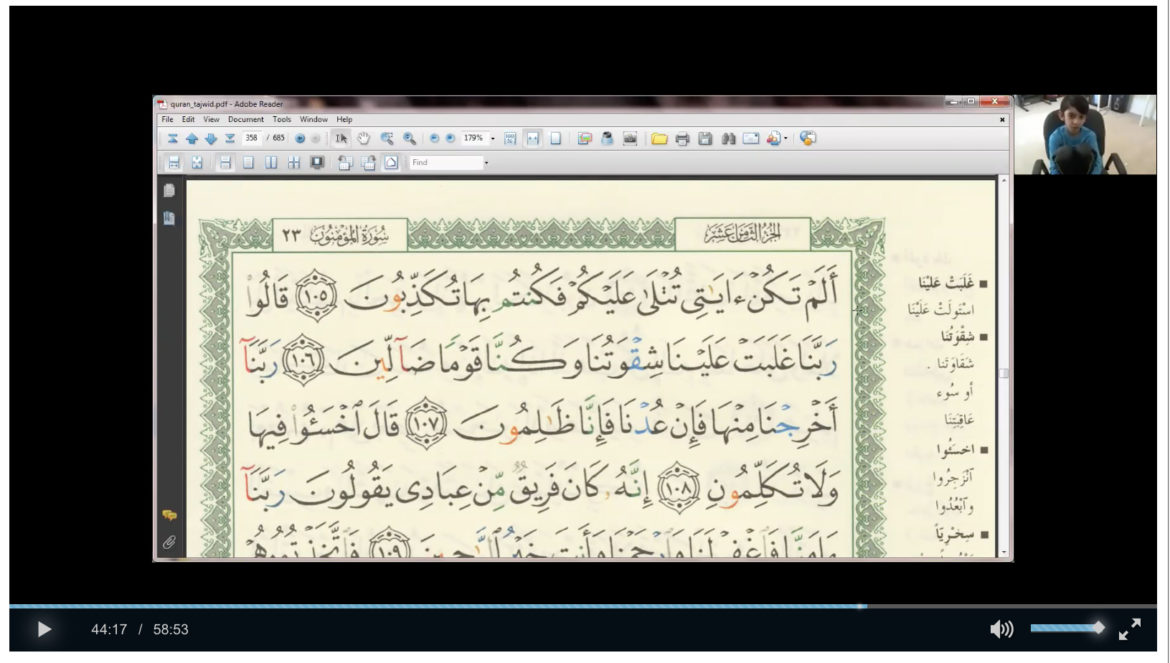 quran_tajwid.pdf - Adobe Reader
File Edit View Document Tools Window Help
358 / 685 179% Find
سُورَةُ المُؤْمِنُون ٢٣
الجُزْءُ الثَّامِنَ عَشَرَ
أَلَمْ تَكُنْ ءَايَٰتِى تُتْلَىٰ عَلَيْكُمْ فَكُنتُم بِهَا تُكَذِّبُونَ ١٠٥ قَالُوا۟
رَبَّنَا غَلَبَتْ عَلَيْنَا شِقْوَتُنَا وَكُنَّا قَوْمًا ضَآلِّينَ ١٠٦ رَبَّنَآ
أَخْرِجْنَا مِنْهَا فَإِنْ عُدْنَا فَإِنَّا ظَٰلِمُونَ ١٠٧ قَالَ ٱخْسَـُٔوا۟ فِيهَا
وَلَا تُكَلِّمُونِ ١٠٨ إِنَّهُۥ كَانَ فَرِيقٌ مِّنْ عِبَادِى يَقُولُونَ رَبَّنَآ
١٠٩
■ غَلَبَتْ عَلَيْنَا
اسْتَوْلَتْ عَلَيْنَا
■ شِقْوَتُنَا
شَقَاوَتُنَا .
أو سُوء
عَاقِبَتِنَا
■ اخسَئُوا
انْزَجِرُوا
وآبْعُدُوا
■ سِخْرِيّاً
44:17 / 58:53